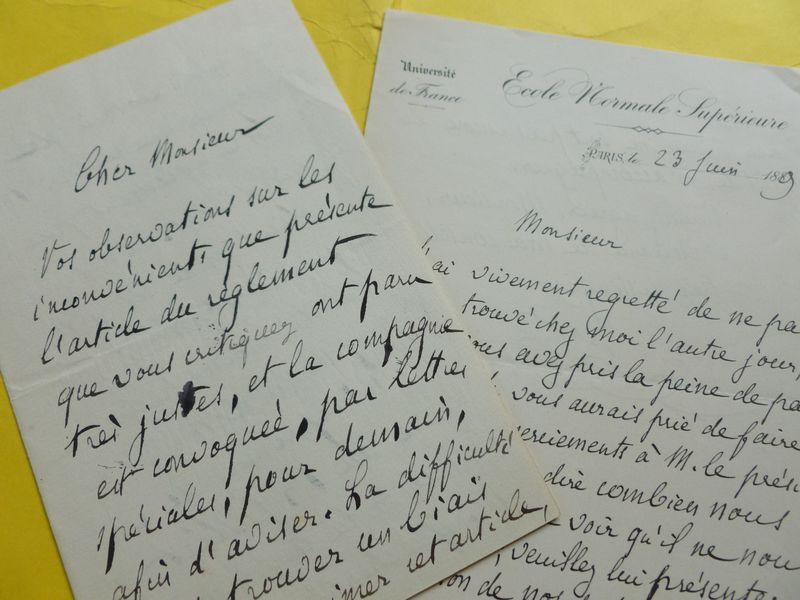 Cher Monsieur
Vos observations sur les
inconvénients que présente
l'article du règlement
que vous critiquez ont paru
très justes, et la compagnie
est convoqueé, par lettres
spéciales, pour demain,
afin d'aviser. La difficulté
trouver un biais
imer cet article,
Université
de France
Ecole Normale Supérieure
PARIS, le 23 Juin 1889
Monsieur
ai vivement regretté de ne pa
trouvé chez moi l'autre jour,
ous avez pris la peine de pa
vous aurais prié de faire
erciements à M. le prési
dire combien nous
voir qu'il ne nou
, veuillez lui présenter
on de nos